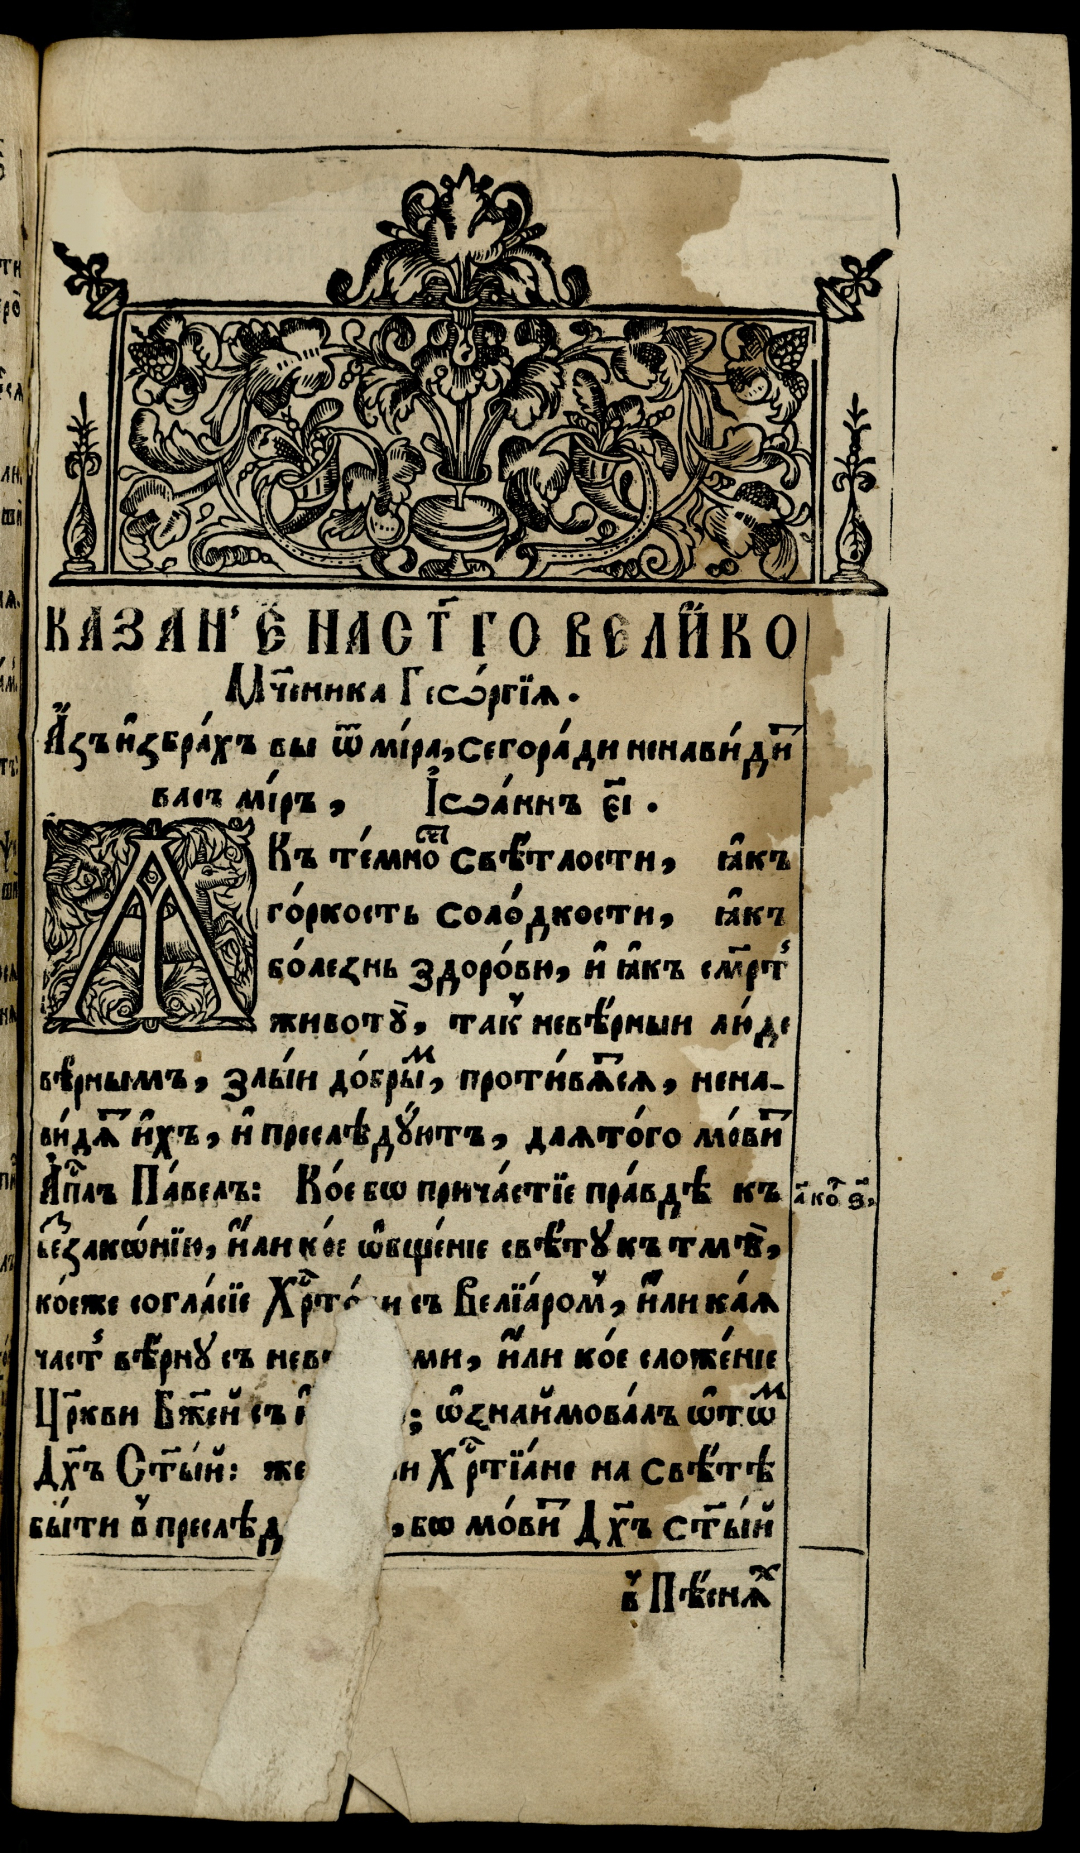 КАЗАН̾Є НАСТ҃ГО ВЕЛИ́КО
Мч҃еника Геѡ́ргїѧ.
А҆́зъ и҆збра́хъ вы ѿ мі́ра, сегора́ди ненави́ди҃
васъ мі́ръ, І҆ѡа́ннъ є҃і.
ІАКъ те́мноⷭ҇ти свѣ́тлости, ꙗ҆къ
го́ркость соло́дкости, ꙗ҆къ
бо́лезнь здоро́ви, и҆ ꙗ҆къ см҃рт̾
животꙋ̀, такъ невѣ́рныи лю́де
вѣ́рнымъ, злы́и до́бры́ⷨ, проти́вѧ҃сѧ, нена-
ви́дѧ҃ и҆́хъ, и҆ преслѣдꙋ́ютъ, длѧто́го мо́ви҃
А҆п҃лъ Па́велъ: Ко́е бѡ прича́стїе пра́вдѣ къ
беⷥзакѡ́нїю, и҆лѝ ко́е ѡ҆бще́нїе свѣ́тꙋ къ тмѣ̀,
ко́еже согла́сїе Хрⷭ҇то́ви съ Велїа́ромъ, и҆лѝ ка́ѧ
част̾ вѣ́рнꙋ съ невѣ ми, и҆лѝ ко́е сложе́нїе
Цр҃кви Бж҃ей съ ; ѡ҆знаймова́лъ ѡ҆ тѡⷨ
Дх҃ъ Ст҃ы́й: же Хрⷭ҇тїа́не на свѣ́тѣ
бы́ти в̾ преслѣд , бѡ мо́ви҃ Дх҃ъ ст҃ы́й
а҃ коⷬ҇ ѕ҃,
в̾ Пѣ́снѧⷯ